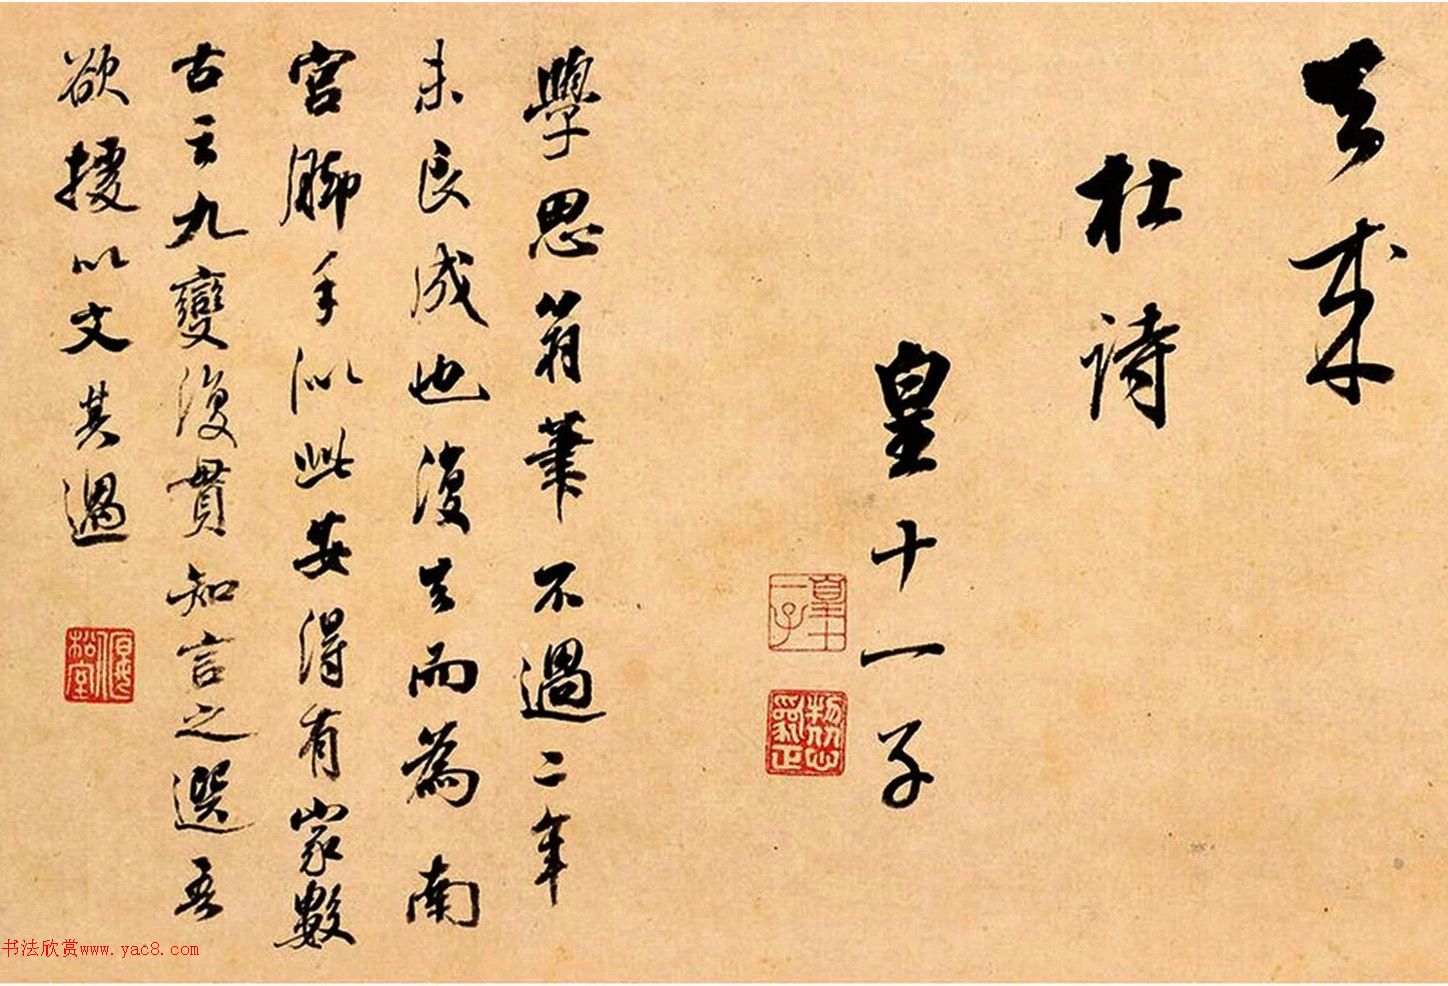 去來
杜詩
皇十一子
皇十一子
學思翁筆不過二年
未良成也復去而為南
宮脚手似此安得有家數
古云九變復貫知言之選吾
欲援以文其過
书法欣赏www.yac8.com